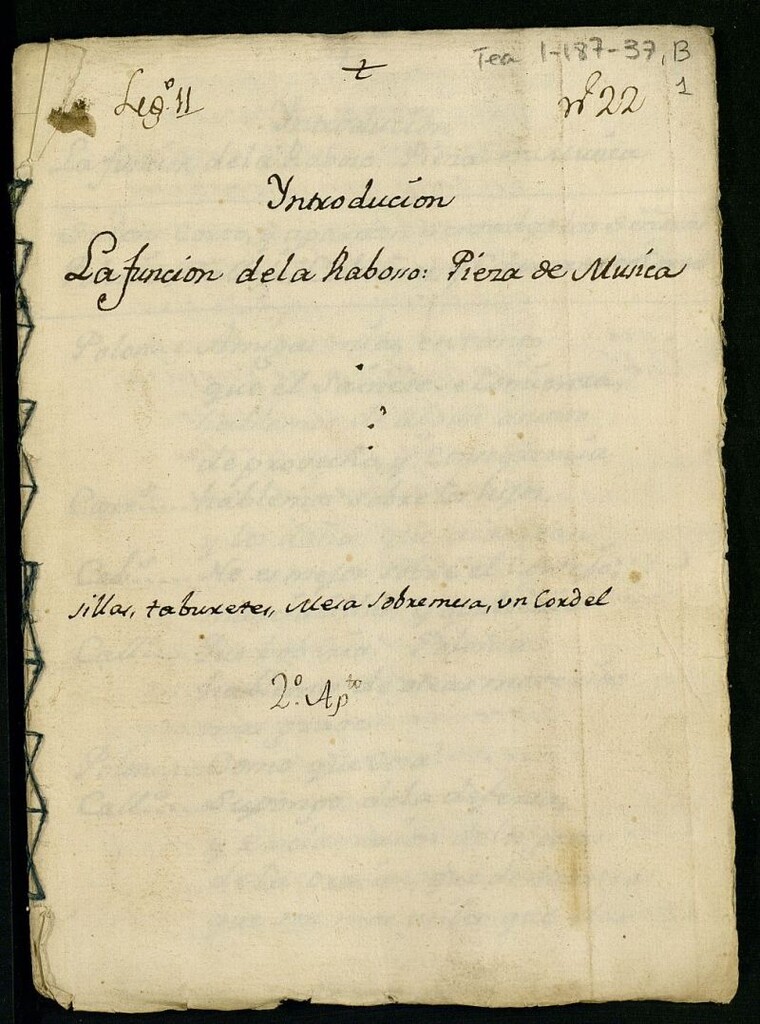 Tea 1-187-37, B
1
Leg.º 11
nº 22
Yntroducion
La funcion dela Raboso: Pieza de Musica
sillas, taburetes, Mesa sobremesa, vn Cordel
2º. Apto